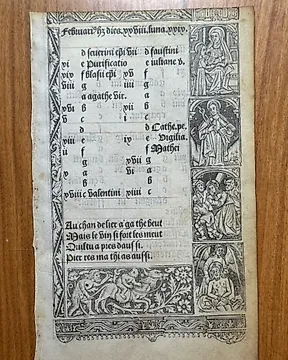 Februari' hz dies. xxviii. luna. xxix.
d seuerini epi vii d faustini
xi e Purificatio e iuliane v.
xix f blasii epi xv f
viii g iiii g
a agathe vir. A
xvi B xii B
v c i c
d d Cathe. pe.
xiii e ix e Vigilia.
ii f f Mathei
g xvii g
x A vi A
B B
xviii c valentini xiiii c
Au chandelier a ga the beut
Mais le vin si fort les meut
Quil tu a pres dauf si.
Pier res ma thi as auf si.